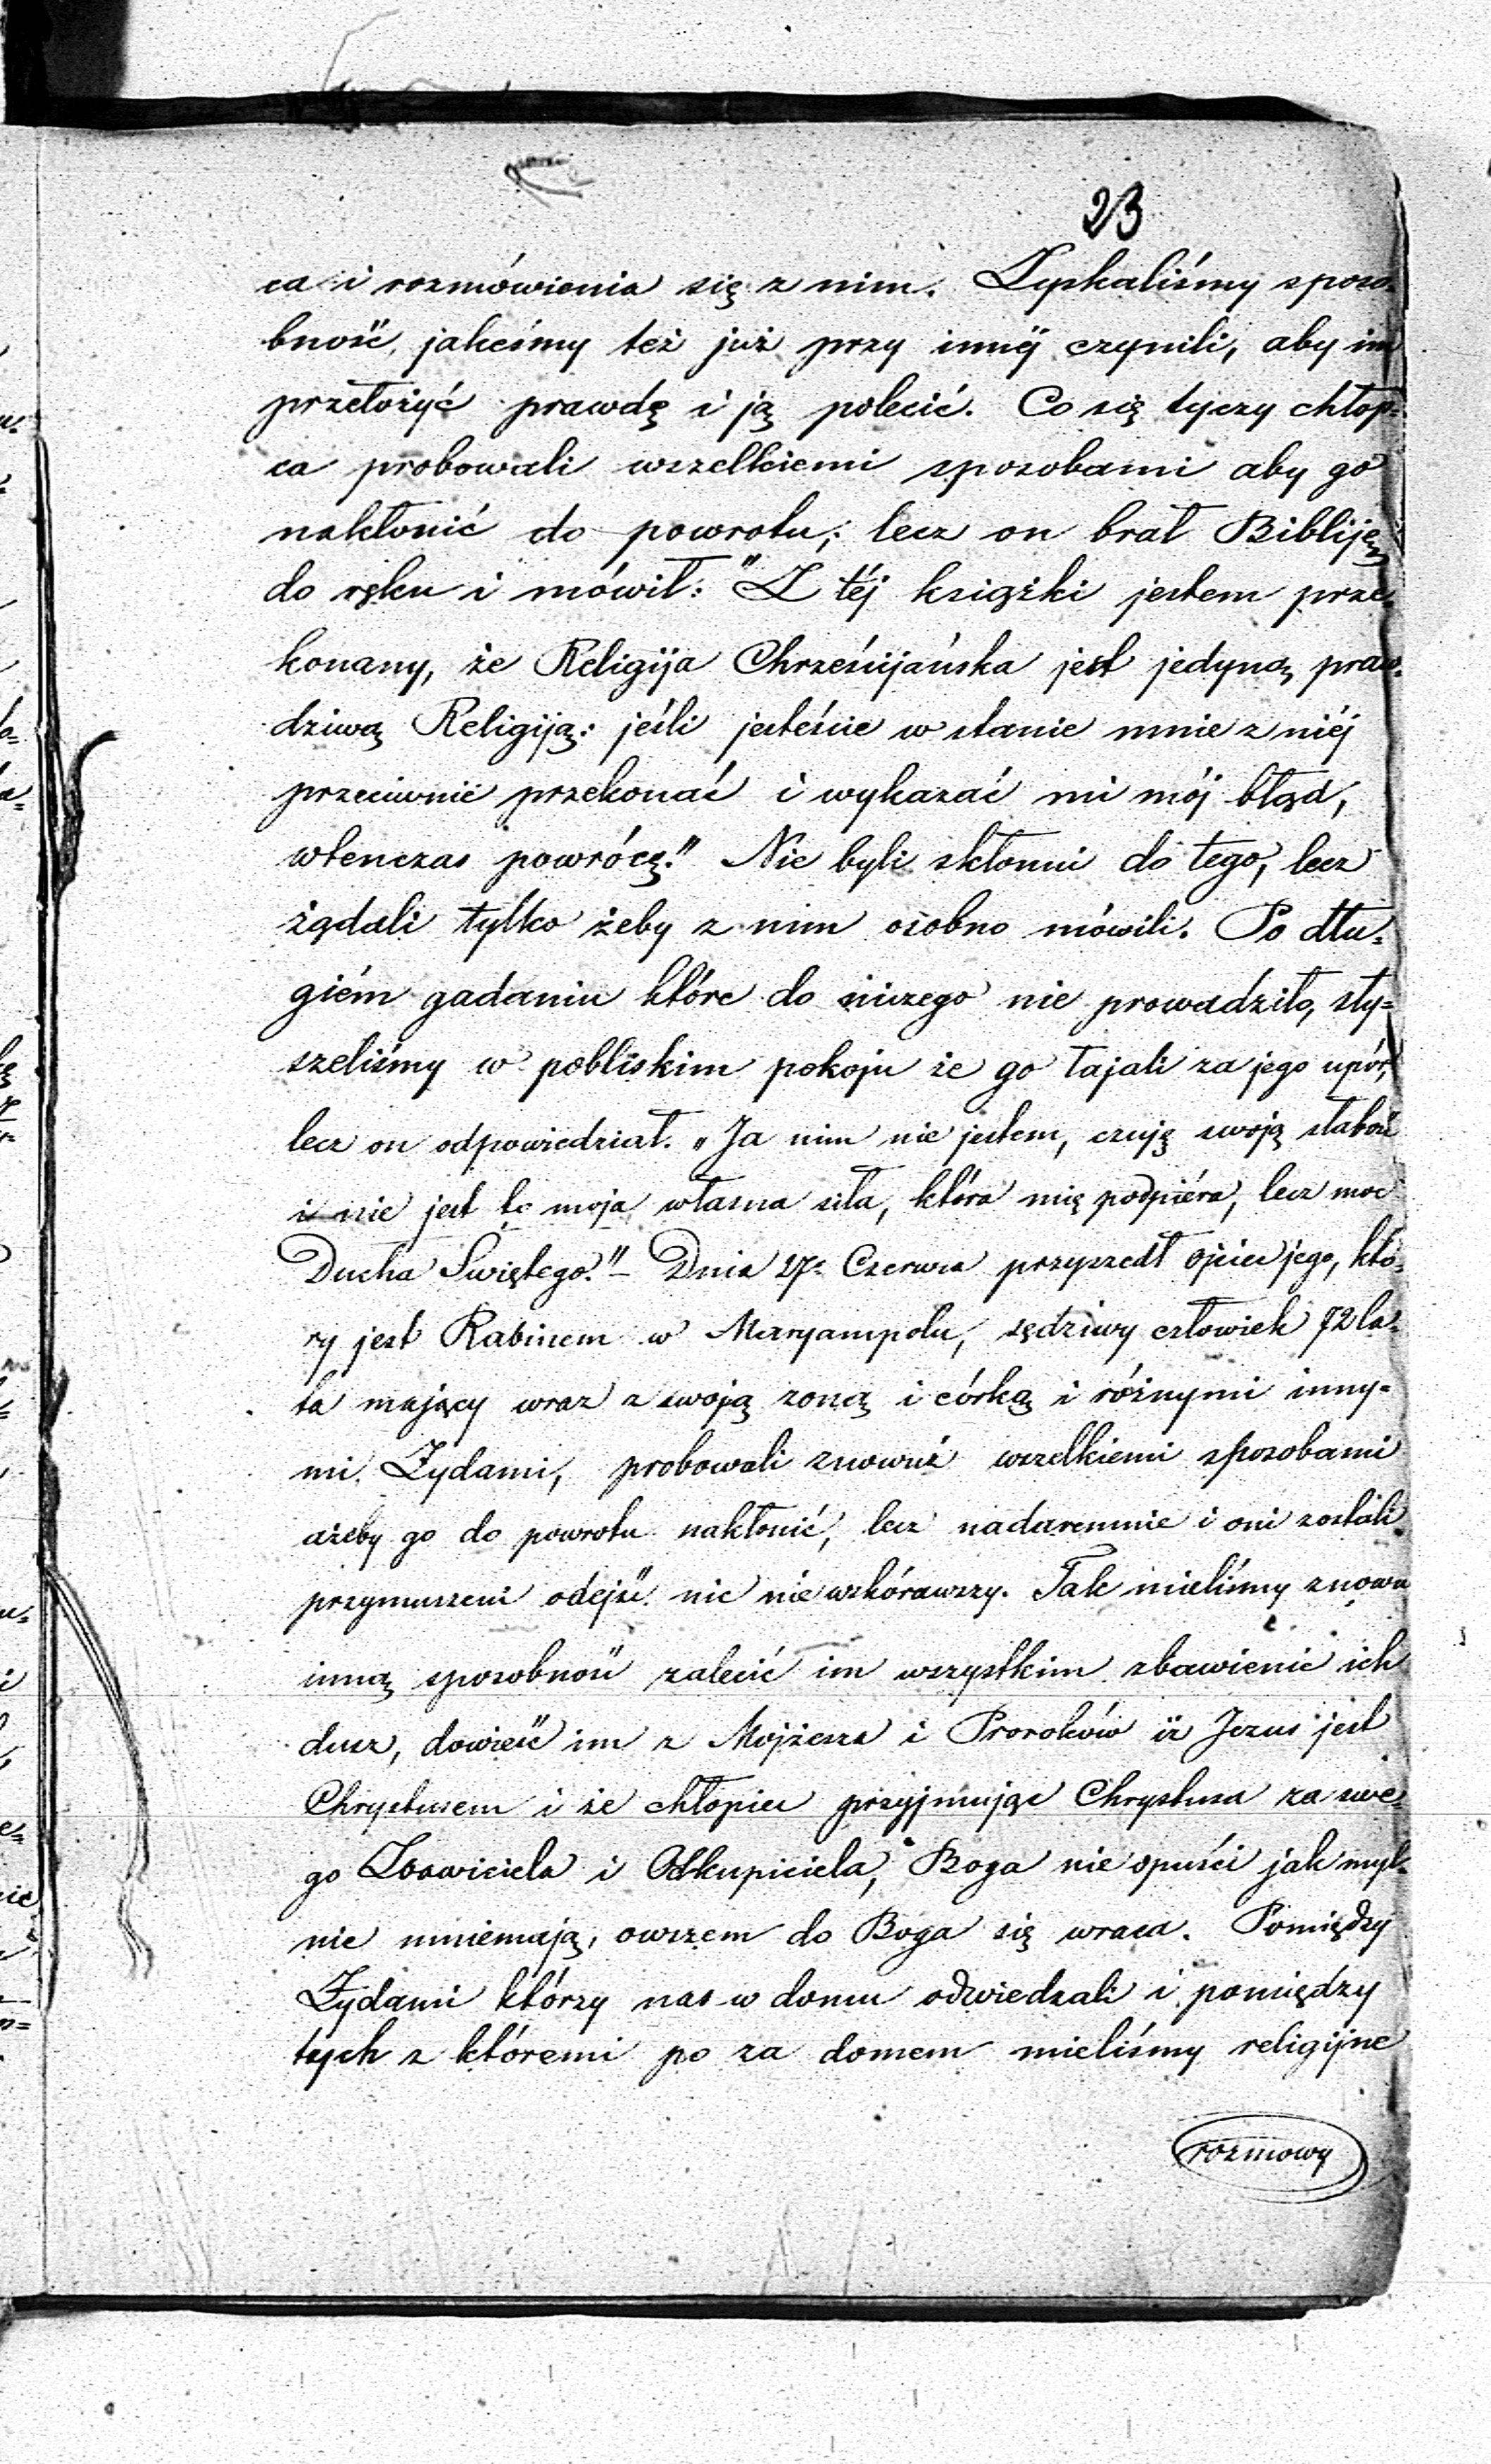 23
ca i rozmówienia się z nim. Zyskaliśmy sposo-
bność, jakeśmy też już przy innéj czynili, aby im
przełożyć prawdę i ją polecić. Co się tyczy chłop=
ca probowali wszelkiemi sposobami aby go
nakłonić do powrotu; lecz on brał Bibliję
do ręku i mówił: "Z téj książki jestem prze-
konany, że Religija Chrześcijańska jest jedyną praw-
dziwą Religiją: jeśli jesteście w stanie mnie z niéj
przeciwnie przekonać i wykazać mi mój błąd,
wtenczas powrócę." Nie byli skłonni do tego, lecz
żądali tylko żeby z nim osobno mówili. Po dłu-
giém gadaniu które do niczego nie prowadziło, sły=
szeliśmy w pobliskim pokoju że go łajali za jego upór,
lecz on odpowiedział. „Ja nim nie jestem, czuję swoją słabość
i nie jest to moja własna siła, która mię podpiéra, lecz moc
Ducha Świętego." – Dnia 27º Czerwca przyszedł ojciec jego, któ-
ry jest Rabinem w Maryampolu, sędziwy człowiek 72 la-
ta mający wraz z swoją zoną i córką i różnymi inny=
mi Żydami, probowali znowuż wszelkiemi sposobami
ażeby go do powrotu nakłonić, lecz nadaremnie i oni zostali
przymuszeni odejść nic nie wskórawszy. Tak mieliśmy znowu
inną sposobność zalecić im wszystkim zbawienie ich
dusz, dowieść im z Mojżesza i Proroków iż Jezus jest
Chrystusem i że chłopiec przyjmując Chrystusa za swe-
go Zbawiciela i Odkupiciela, Boga nie opuści jak myl-
nie mniemają, owszem do Boga się wraca. Pomiędzy
Żydami którzy nas w domu odwiedzali i pomiędzy
tych z któremi po za domem mieliśmy religijne
rozmowy